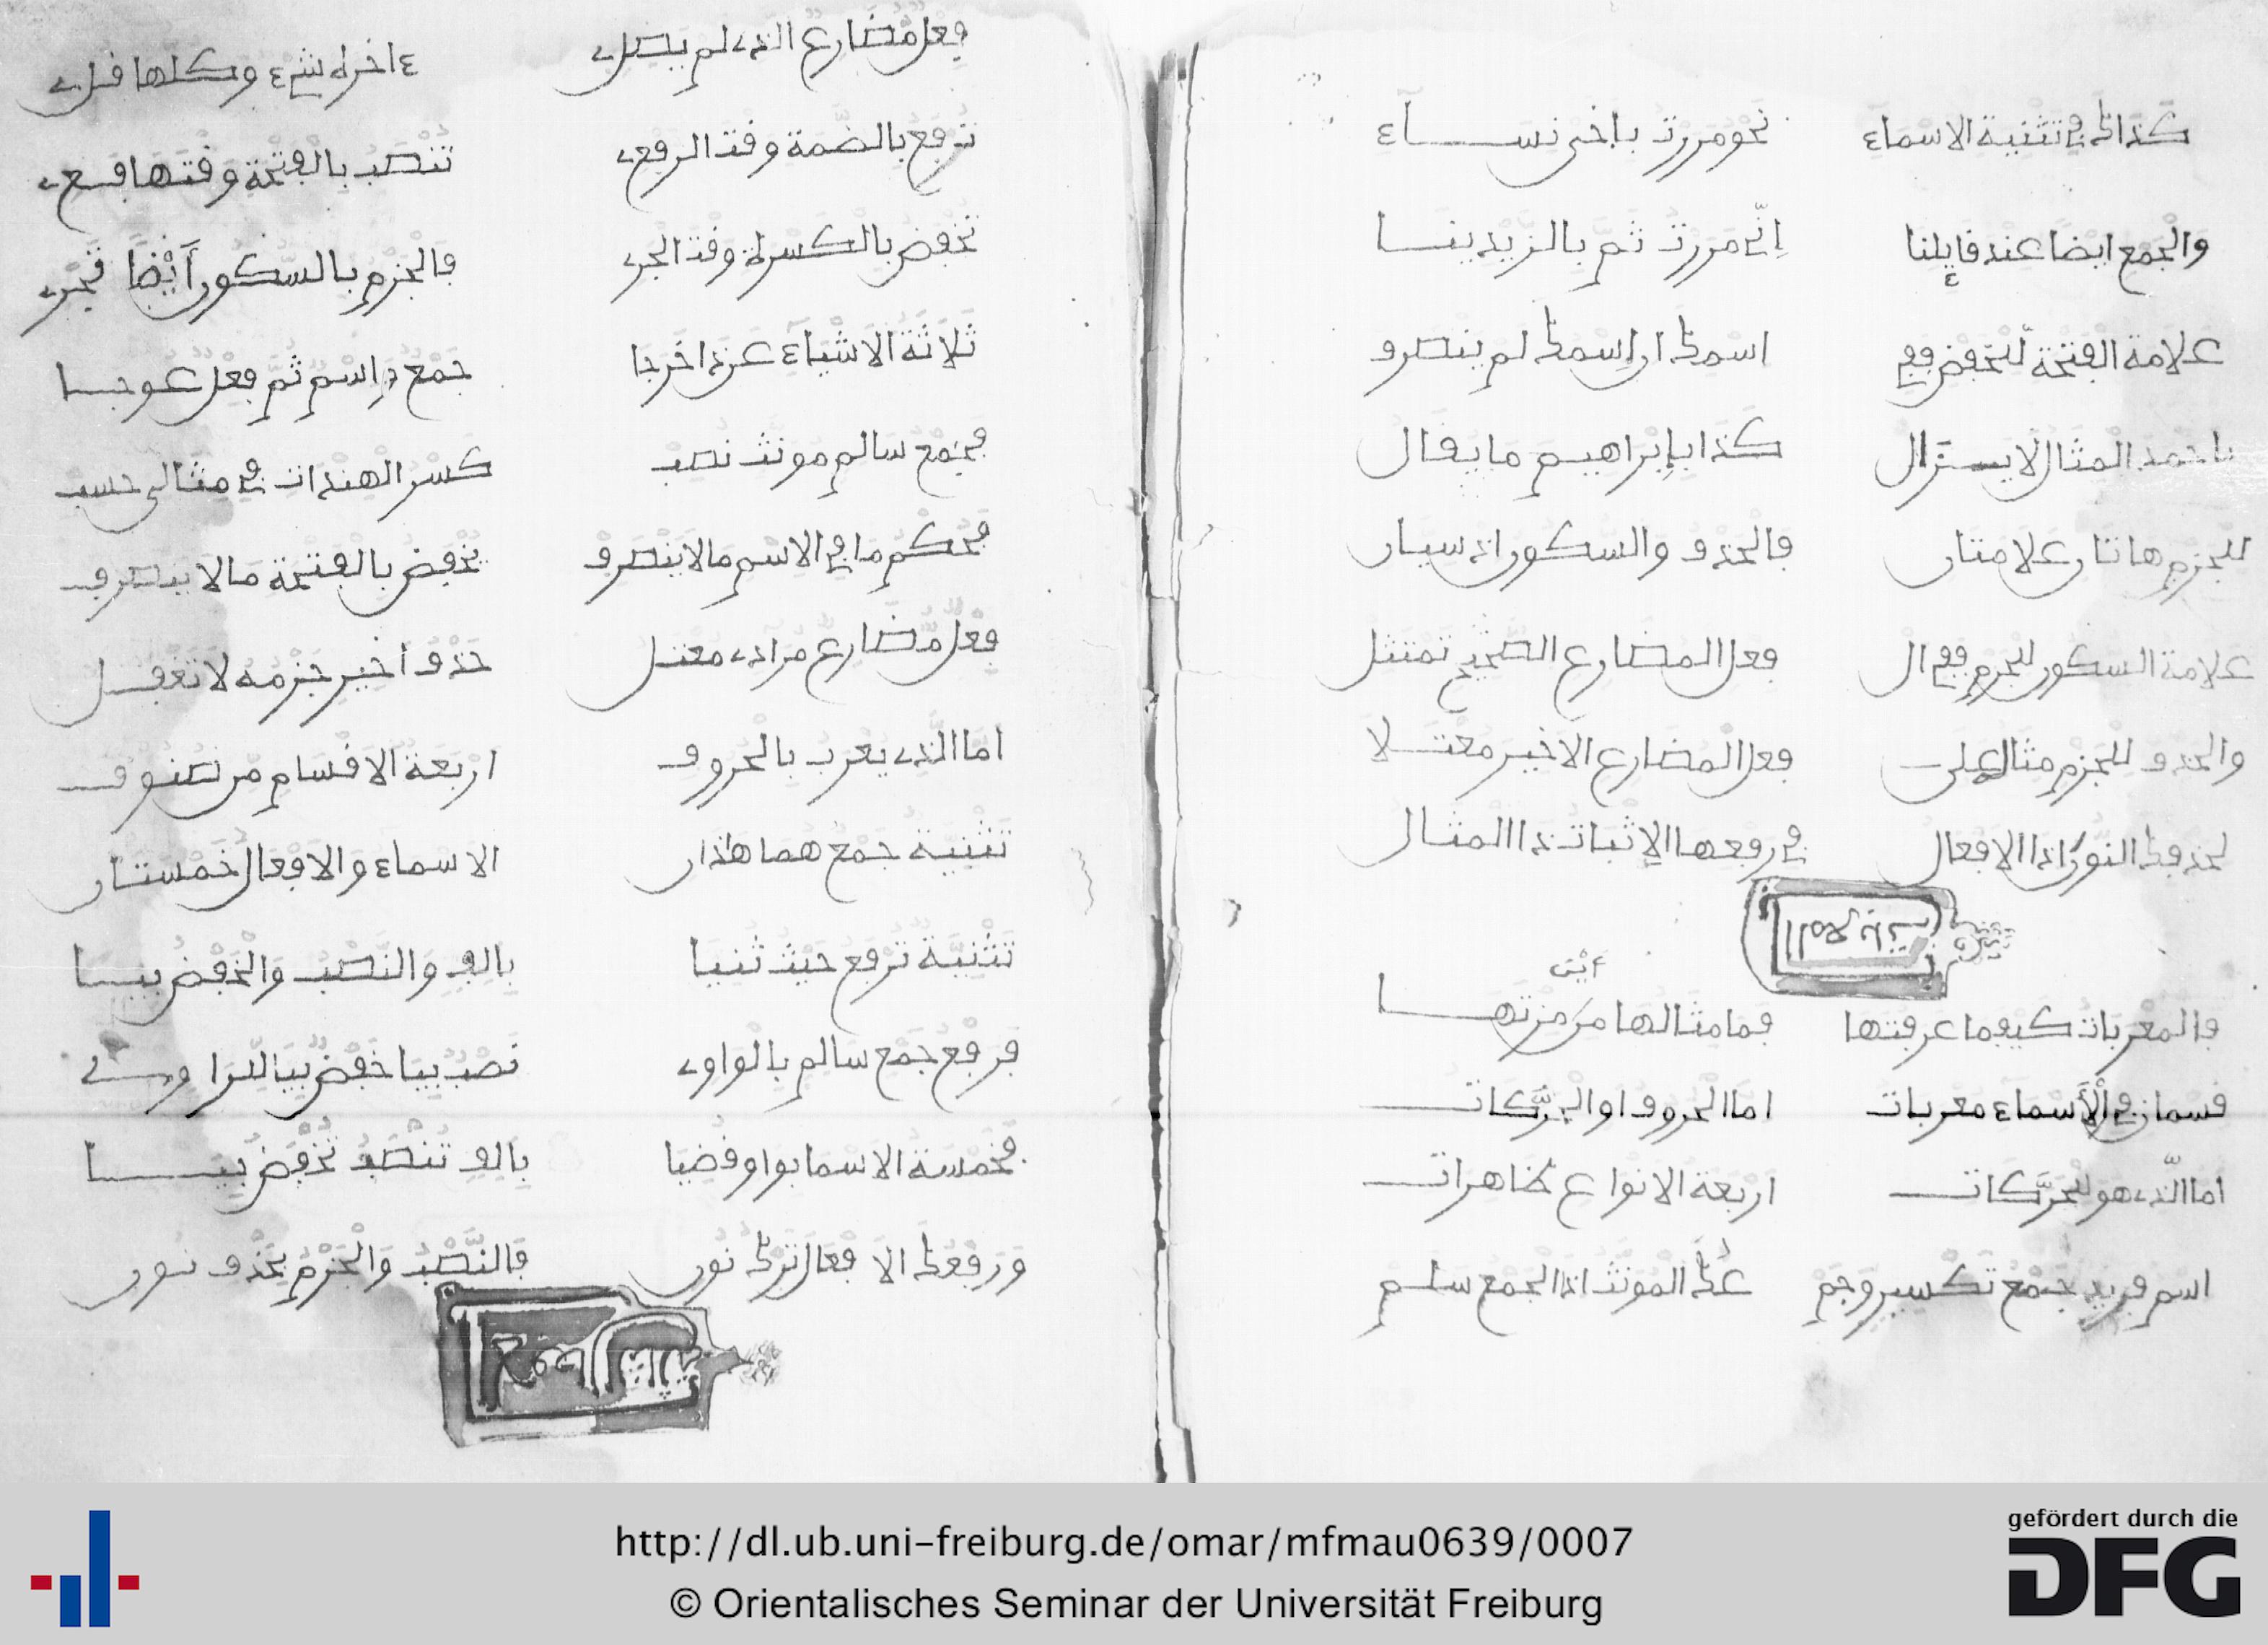 كذاك في تثنية الاسماء نحو مررت باختي نساء
والجمع ايضا عند قايلنا اني مررت ثم بالزيدينا
علامة الفتحة للخفض ففي اسمك ان اسمك لم ينصرف
باحمد المثال لا يزال كذا بإبراهيم ما يقال
للجزم هاتان علامتان فالحذف والسكون
علامة السكون للجزم ففي ال فعل المضارع الصحيح تمتثل
والحذف للجزم مثال على فعل المضارع الاخير معتلا
لحذفك النون اذا الافعال في رفعها الإثبات ذا المثال
فالمعربات كيفما عرفتها فما مثالها من مزتها
أين
قسمان في الأسماء معربات اما الحروف او الحركات
اما الذي هو للحركات اربعة الانواع ظاهرات
اسم فريد جمع تكسير وجم ع المونث اذا الجمع سلم
فعل مضارع الذي لم يصل ء اخره شيء وكلها قل
ترفع بالضمة وقت الرفع تنصب بالفتحة وقتها فع
تخفض بالكسرة وقت الجر فالجزم بالسكون أيضا فجر
ثلاثة الاشياء عن ذا خرجا جمع واسم ثم فعل عوجا
فجمع سالم مونث نصب كسر الهندات في مثالي حسب
فحكم ما في الاسم ما لا ينصرف يخفض بالفتحة ما لا ينصرف
فعل مضارع مرادي معتل حذف أخير جزمه لا تغفل
اما الذي يعرب بالحروف اربعة الاقسام من صنوف
تثنية جمع هما هذان الاسماء والافعال خمستان
تثنية ترفع حيث ثنيا بالف والنصب والخفض بيا
فرفع جمع سالم بالواو نصب بيا خفض بيا للراو
فخمسة الاسما بواو قضيا بالف تنصب تخفض بيا
ورفعك الافعال ترك نون فالنصب والجزم بحذف نون
http://dl.ub.uni-freiburg.de/omar/mfmau0639/0007
© Orientalisches Seminar der Universität Freiburg
gefördert durch die
DFG